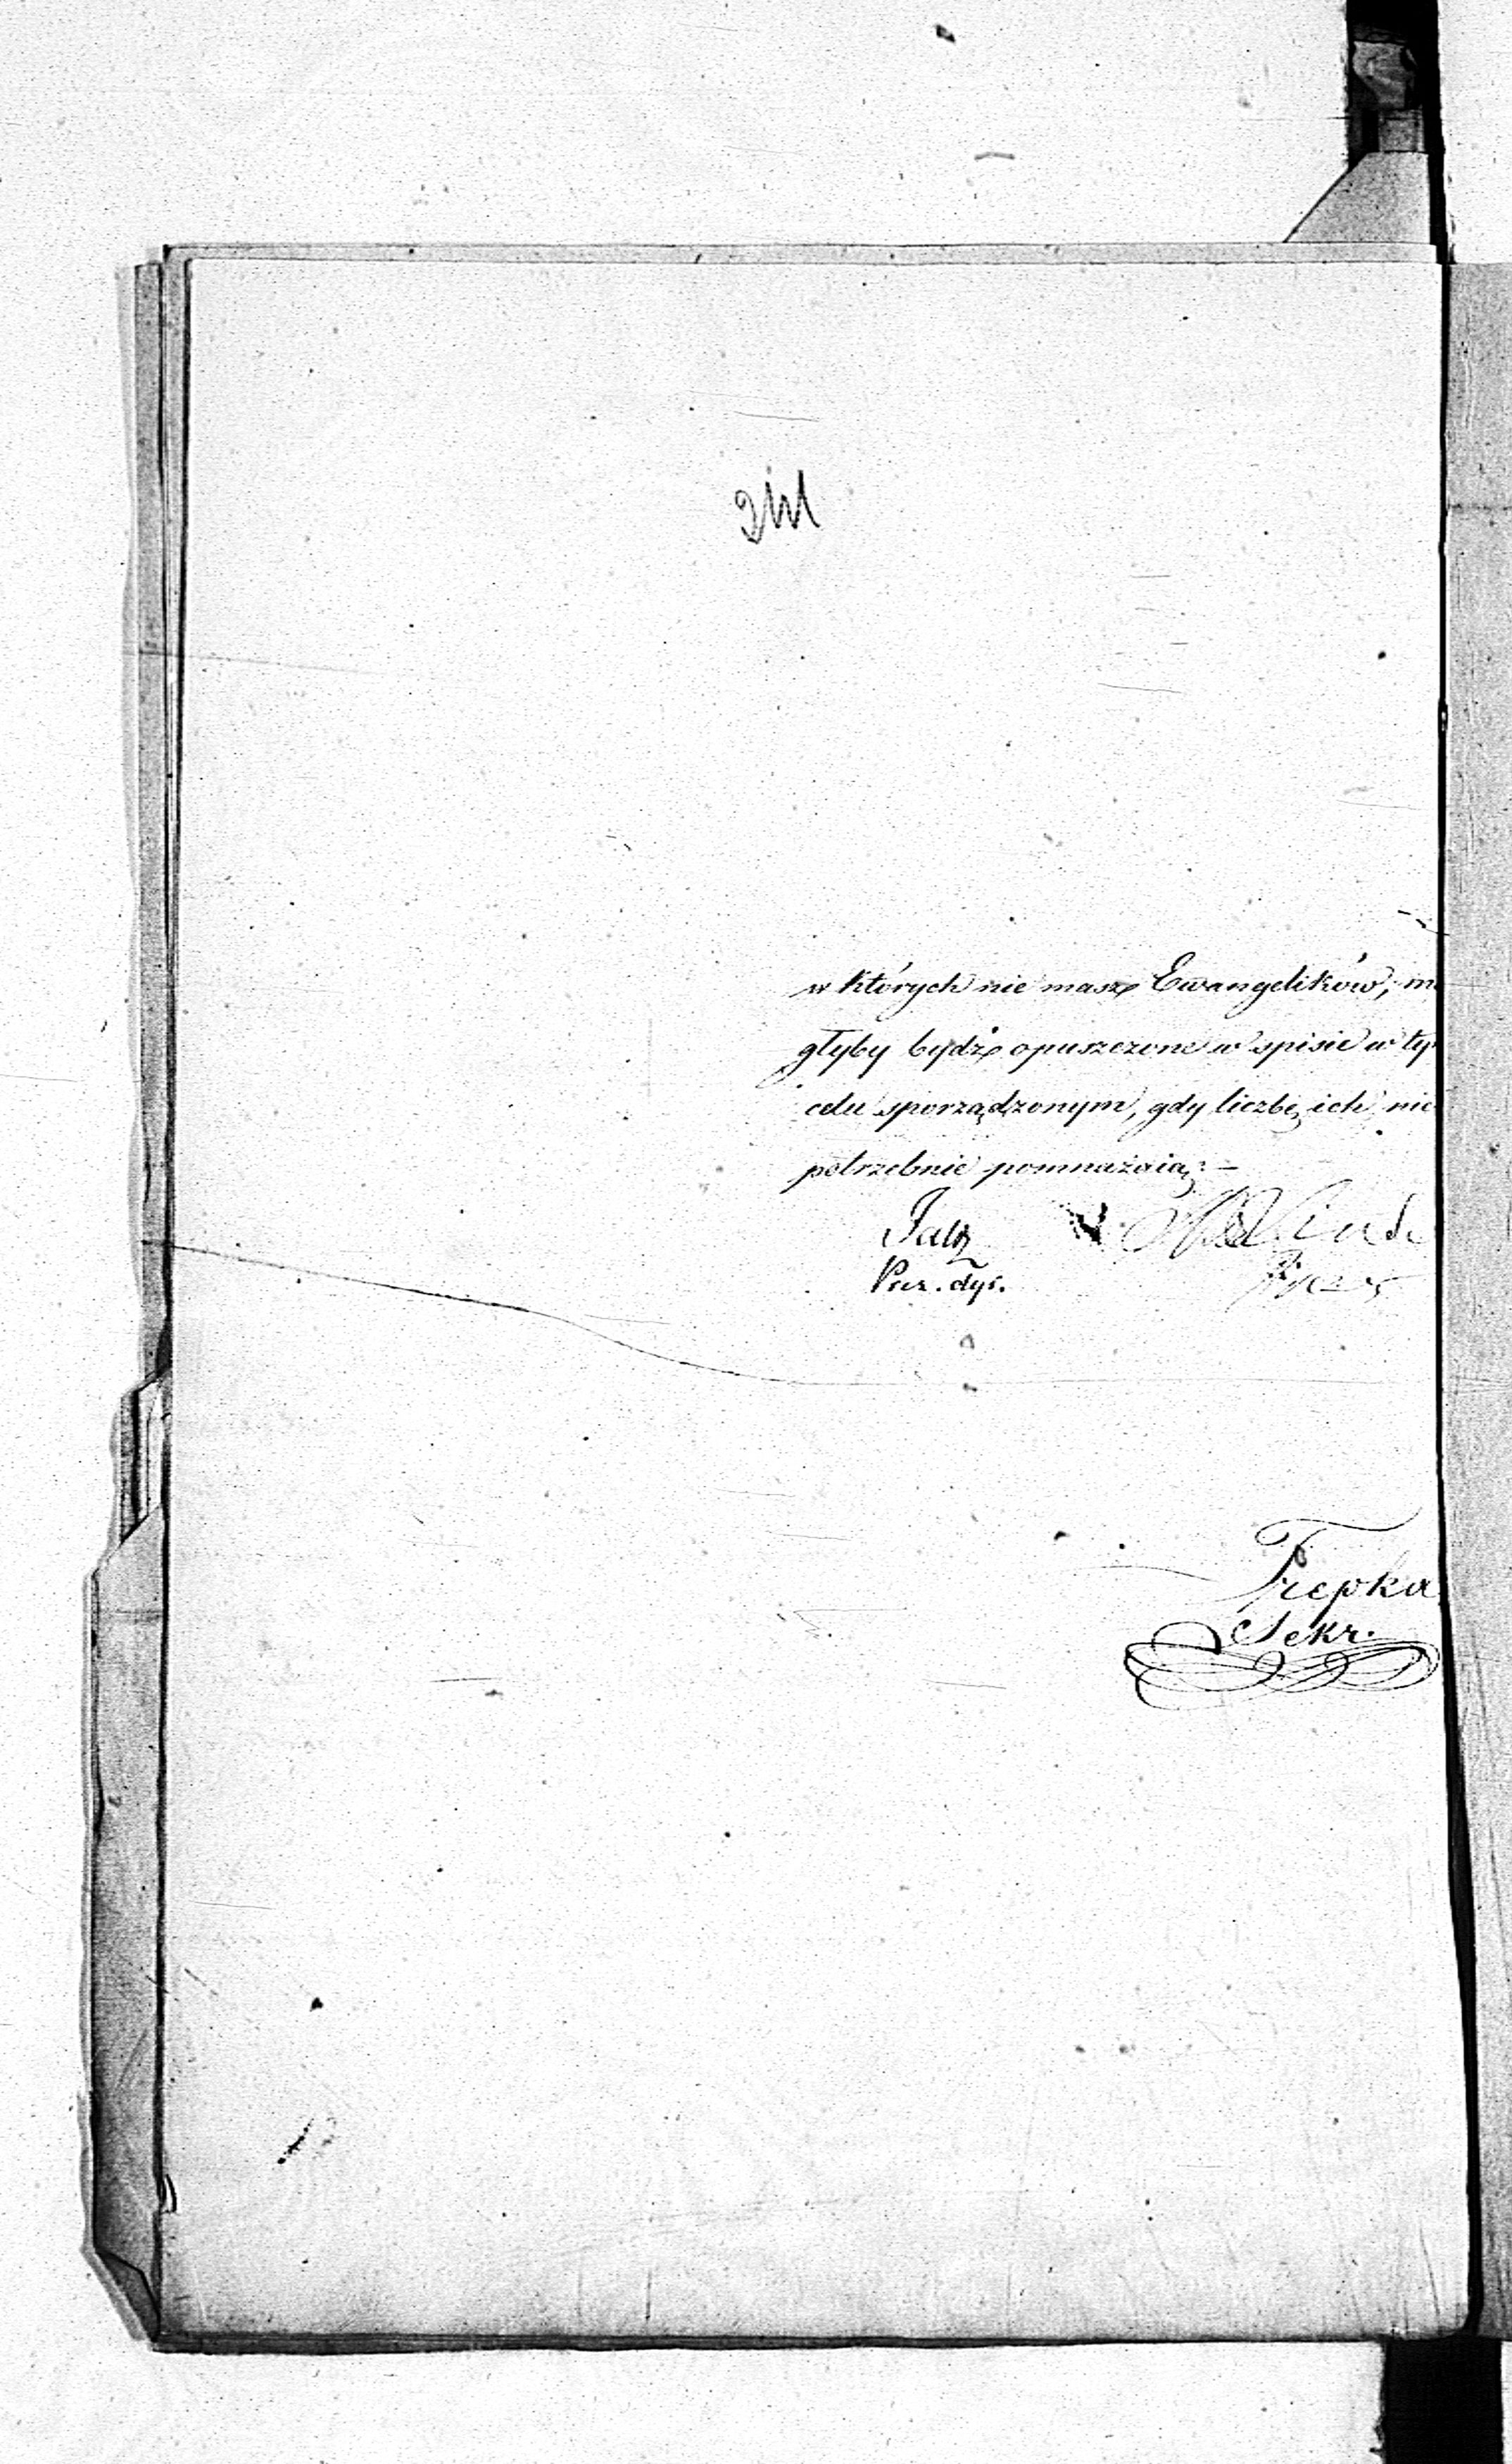 241
w których nie masz Ewangelików, mo
głyby bydź opuszczone w spisie w ty
celu sporządzonym, gdy liczbę ich nie
potrzebnie pomnażaią. –
Prez. dys.
Trepka
Sekr.